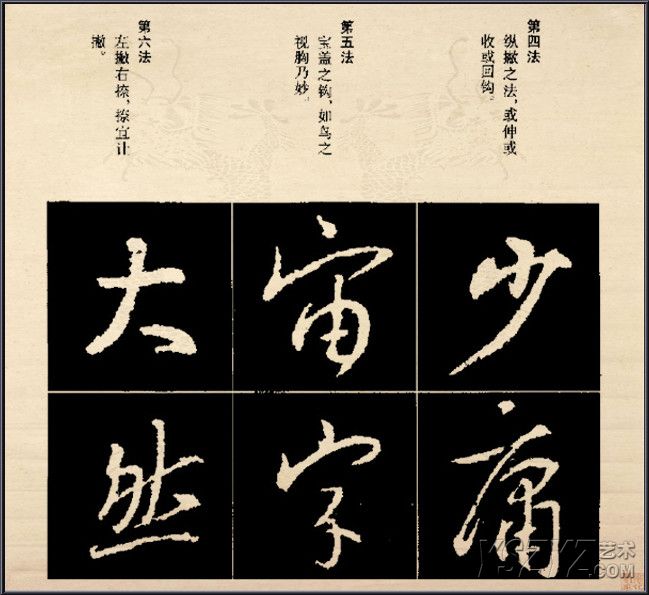 第四法
纵撇之法，或伸或
收或回钩。
第五法
宝盖之钩，如鸟之
视胸乃妙。
第六法
左撇右捺，捺宜让
撇。
少
庸
宙
字
大
然
YSZYZ艺术
.COM